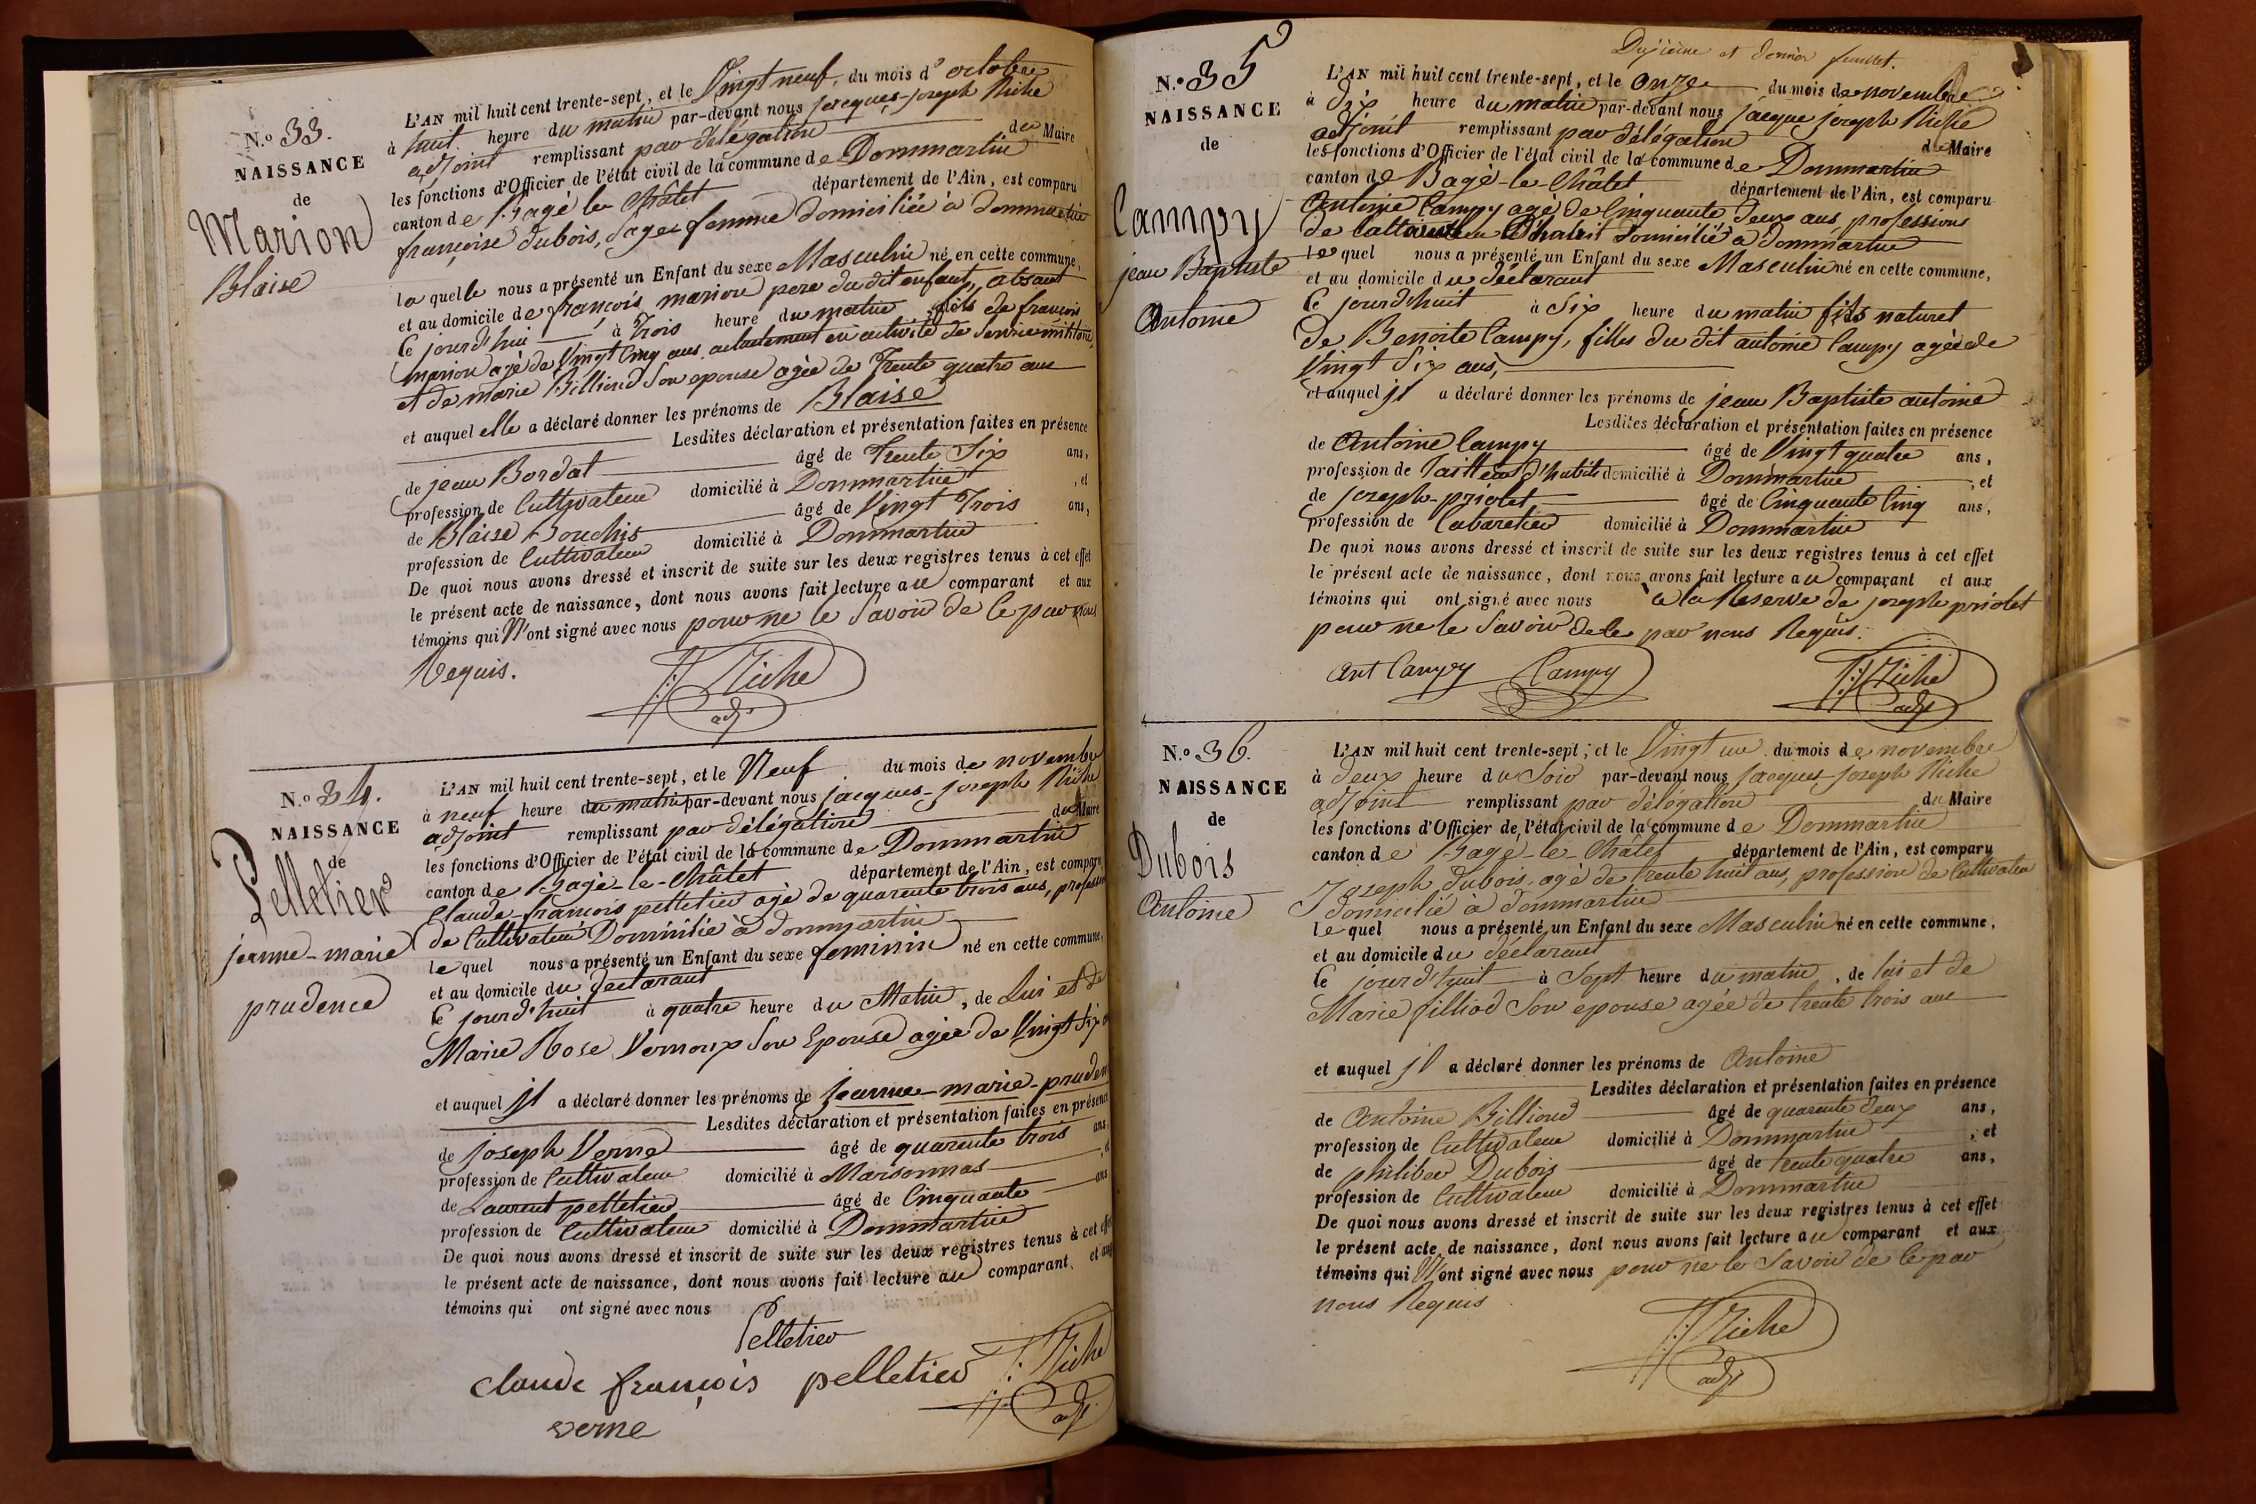 N.º 33.
NAISSANCE
de
Marion
Blaise
L'AN mil huit cent trente-sept, et le Vingt neuf, du mois d'octobre
à huit heure du matin par-devant nous jacques-joseph Riche
adjoint remplissant par délégation du Maire
les fonctions d'Officier de l'état civil de la commune de Dommartin
canton de Bagé le Châtel département de l'Ain, est comparu
françoise dubois, Sage femme domiciliée à dommartin
la quelle nous a présenté un Enfant du sexe Masculin né en cette commune,
et au domicile de françois marion pere du dit enfant, absant
Ce jourd'hui à Trois heure du matin, fils de françois
marion agé de Vingt Cinq ans actuelement en activité de Service militaire,
et de marie Billioud Son epouse agée de Trente quatre ans
et auquel elle a déclaré donner les prénoms de Blaise
Lesdites déclaration et présentation faites en présence
de jean Bordat âgé de Trente Six ans,
profession de Cultivateur domicilié à Dommartin, et
de Blaise Bouchis âgé de Vingt Trois ans,
profession de Cultivateur domicilié à Dommartin
De quoi nous avons dressé et inscrit de suite sur les deux registres tenus à cet effet
le présent acte de naissance, dont nous avons fait lecture au comparant et aux
témoins qui N'ont signé avec nous pour ne le Savoir de Ce par nous
Requis.
J:J Riche
adj.
N.º 34.
NAISSANCE
de
Pelletier
jeanne-marie
prudence
L'AN mil huit cent trente-sept, et le Neuf du mois de novembre
à neuf heure du matin par-devant nous jacques-joseph Riche
adjoint remplissant par délégation du Maire
les fonctions d'Officier de l'état civil de la commune de Dommartin
canton de Bagé-le-Châtel département de l'Ain, est comparu
Claude-françois pelletier agé de quarente trois ans, profession
de Cultivateur Domicilié à dommartin
le quel nous a présenté un Enfant du sexe feminin né en cette commune,
et au domicile du declarant
Ce jourd'huit à quatre heure du Matin, de Lui et de
Marie Rose Vernoux Son Epouse agée de Vingt Six
et auquel il a déclaré donner les prénoms de jeanne-marie-pruden
Lesdites déclaration et présentation faites en présence
de joseph Verne âgé de quarente trois ans,
profession de Cultivateur domicilié à Marsonnas, et
de Laurent pelletier âgé de Cinquante ans
profession de Cultivateur domicilié à Dommartin
De quoi nous avons dressé et inscrit de suite sur les deux registres tenus à cet effet
le présent acte de naissance, dont nous avons fait lecture au comparant, et aux
témoins qui ont signé avec nous
Pelletier
claude françois pelletier J:J Riche
verne adj.
Dixième et dernier feuillet.
N.º 35
NAISSANCE
de
Campy
jean Baptiste
Antoine
L'AN mil huit cent trente-sept, et le onze du mois de novembre
à dix heure du matin par-devant nous jacque joseph Riche
adjoint remplissant par délégation du Maire
les fonctions d'Officier de l'état civil de la commune de Dommartin
canton de Bagé-le-Châtel département de l'Ain, est comparu
Antoine Campy agé de Cinquante deux ans professions
de domicilié a dommartin
le quel nous a présenté un Enfant du sexe Masculin né en cette commune,
et au domicile du déclarant
Ce jourd'huit à Six heure du matin fils naturel
de Benoite Campy, filles du dit antoine Campy agée de
Vingt Six ans,
et auquel il a déclaré donner les prénoms de jean Baptiste antoine
Lesdites déclaration et présentation faites en présence
de Antoine Campy âgé de Vingt quatre ans,
profession de Tailleur d'habits domicilié à Dommartin, et
de joseph-priolet âgé de Cinquante Cinq ans,
profession de Cabaretier domicilié à Dommartin
De quoi nous avons dressé et inscrit de suite sur les deux registres tenus à cet effet
le présent acte de naissance, dont nous avons fait lecture au comparant et aux
témoins qui ont signé avec nous a la Reserve de joseph priolet
pour ne le Savoir de Ce par nous Requis.
Ant Campy Campy J:J Riche
adj
N.º 36.
NAISSANCE
de
Dubois
Antoine
L'AN mil huit cent trente-sept, et le Vingt un du mois de novembre
à deux heure du Soir par-devant nous jacques-joseph Riche
adjoint remplissant par délégation du Maire
les fonctions d'Officier de l'état civil de la commune de Dommartin
canton de Bagé-le-Châtel département de l'Ain, est comparu
Joseph dubois, agé de trente huit ans, profession de Cultivateur
domicilié à dommartin
le quel nous a présenté un Enfant du sexe Masculin né en cette commune,
et au domicile du déclarant
Ce jourd'huit à Sept heure du matin, de lui et de
Marie filliod Son epouse agée de trente trois ans
et auquel il a déclaré donner les prénoms de Antoine
Lesdites déclaration et présentation faites en présence
de Antoine Billioud âgé de quarente deux ans,
profession de Cultivateur domicilié à Dommartin, et
de philiber Dubois âgé de trente quatre ans,
profession de Cultivateur domicilié à Dommartin
De quoi nous avons dressé et inscrit de suite sur les deux registres tenus à cet effet
le présent acte de naissance, dont nous avons fait lecture au comparant et aux
témoins qui N'ont signé avec nous pour ne le Savoir de Ce par
nous Requis
J:J Riche
adj